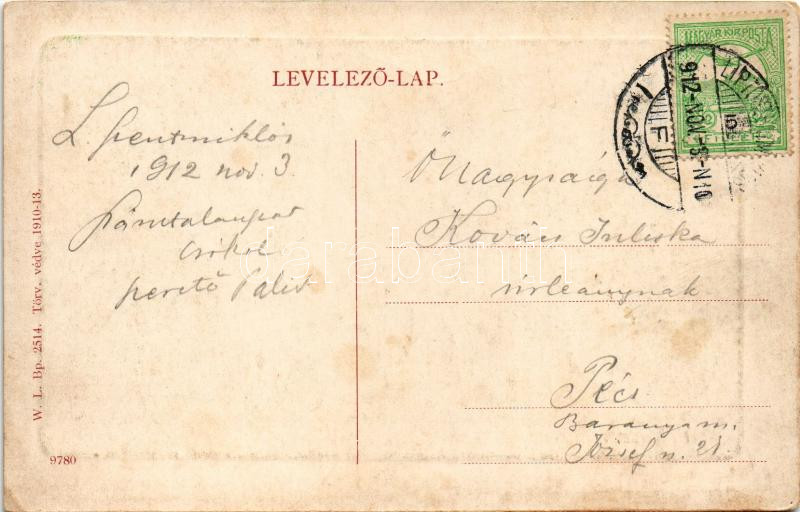 LEVELEZŐ-LAP.
MAGYAR KIR. POSTA
912 NOV -3 N10
F
L. Szentmiklós
1912 nov. 3.
csókol
szerető Palid
Őnagysága
Kovács Juliska
úrleánynak
Pécs
Baranya m.
József u. 21.
W. L. Bp. 2514. Törv. védve 1910-13.
9780
darabanth